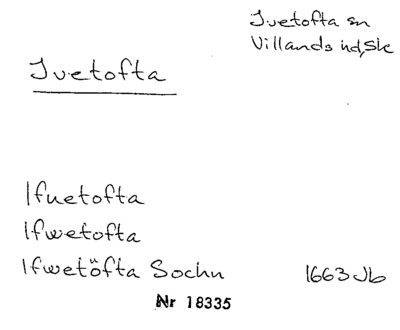 Ivetofta sn
Villands hd, Sk
Ivetofta
Ifuetofta
Ifwetofta
Ifwetöfta Sochn 1663 Jb
Nr 18335